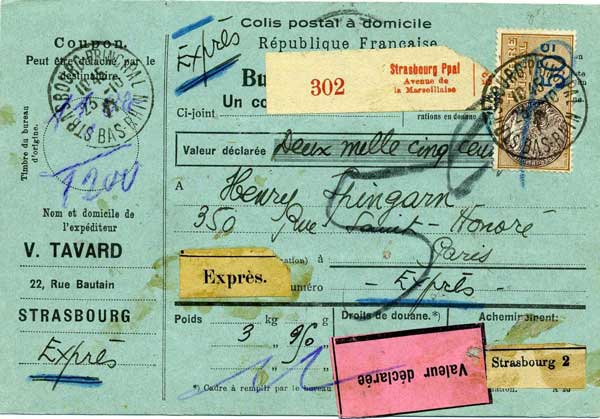 Colis postal à domicile
République Française
Coupon.
Peut être détaché par le
destinataire.
Exprès
302
Strasbourg Ppal
Avenue de
la Marseillaise
Bu
Un co
Ci-joint
rations en douane.
STRASBOURG-PRINCIPAL
BAS-RHIN
Timbre du bureau
d'origine.
Valeur déclarée
Deux mille cinq cent
T200
A
Henry Spingarn
350 Rue Saint-Honoré
Paris
Nom et domicile de
l'expéditeur
V. TAVARD
22, Rue Bautain
STRASBOURG
Exprès
Exprès.
uméro
- Exprès -
Poids
3 kg 950 g
Droits de douane.*)
Acheminement:
Valeur déclarée
Strasbourg 2
*) Cadre à remplir par le bureau